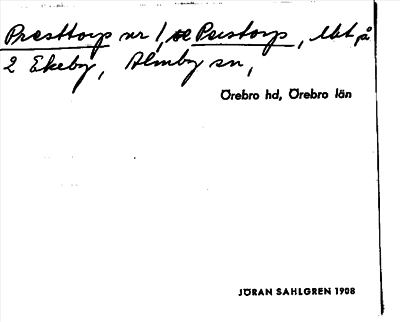 Præsttorp nr 1, se Pristorp, Ubt. på
2 Ekeby, Almby sn,
Örebro hd, Örebro län
JÖRAN SAHLGREN 1908